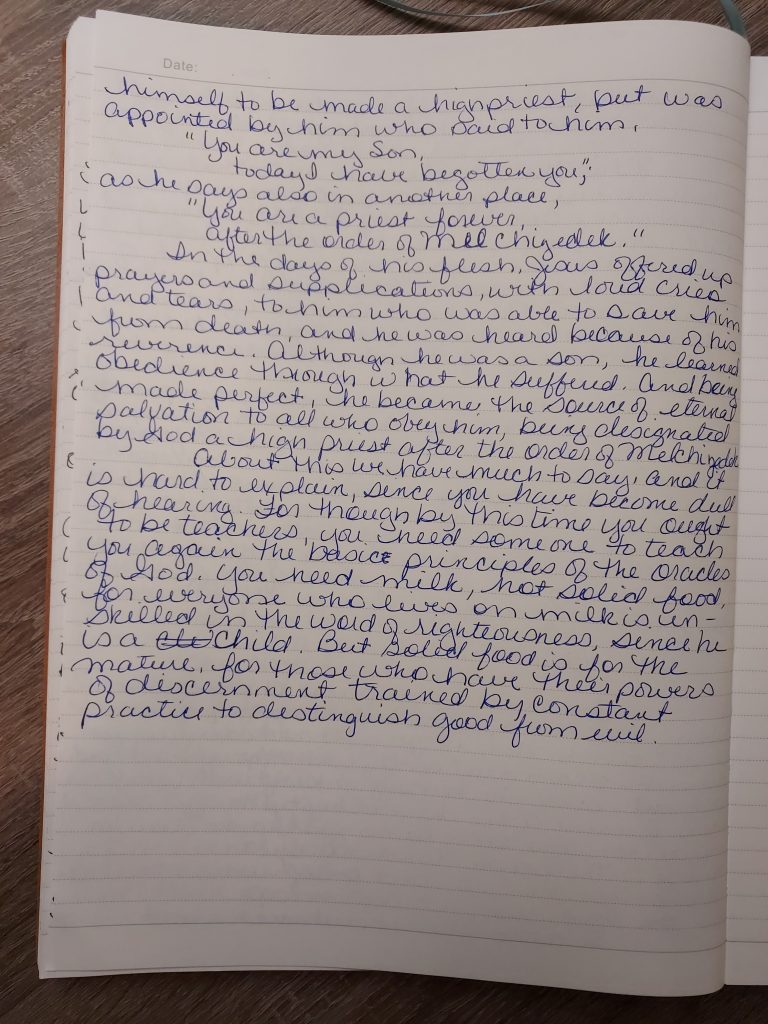 Date:
himself to be made a high priest, but was
appointed by him who said to him,
"You are my Son,
today I have begotten you;"
as he says also in another place,
"You are a priest forever,
after the order of Melchizedek."
In the days of his flesh, Jesus offered up
prayers and supplications, with loud cries
and tears, to him who was able to save him
from death, and he was heard because of his
reverence. Although he was a son, he learned
obedience through what he suffered. And being
made perfect, he became the source of eternal
salvation to all who obey him, being designated
by God a high priest after the order of Melchizedek
About this we have much to say, and it
is hard to explain, since you have become dull
of hearing. For though by this time you ought
to be teachers, you need someone to teach
you again the basic principles of the oracles
of God. You need milk, not solid food,
for everyone who lives on milk is un-
skilled in the word of righteousness, since he
is a child. But solid food is for the
mature, for those who have their powers
of discernment trained by constant
practice to distinguish good from evil.